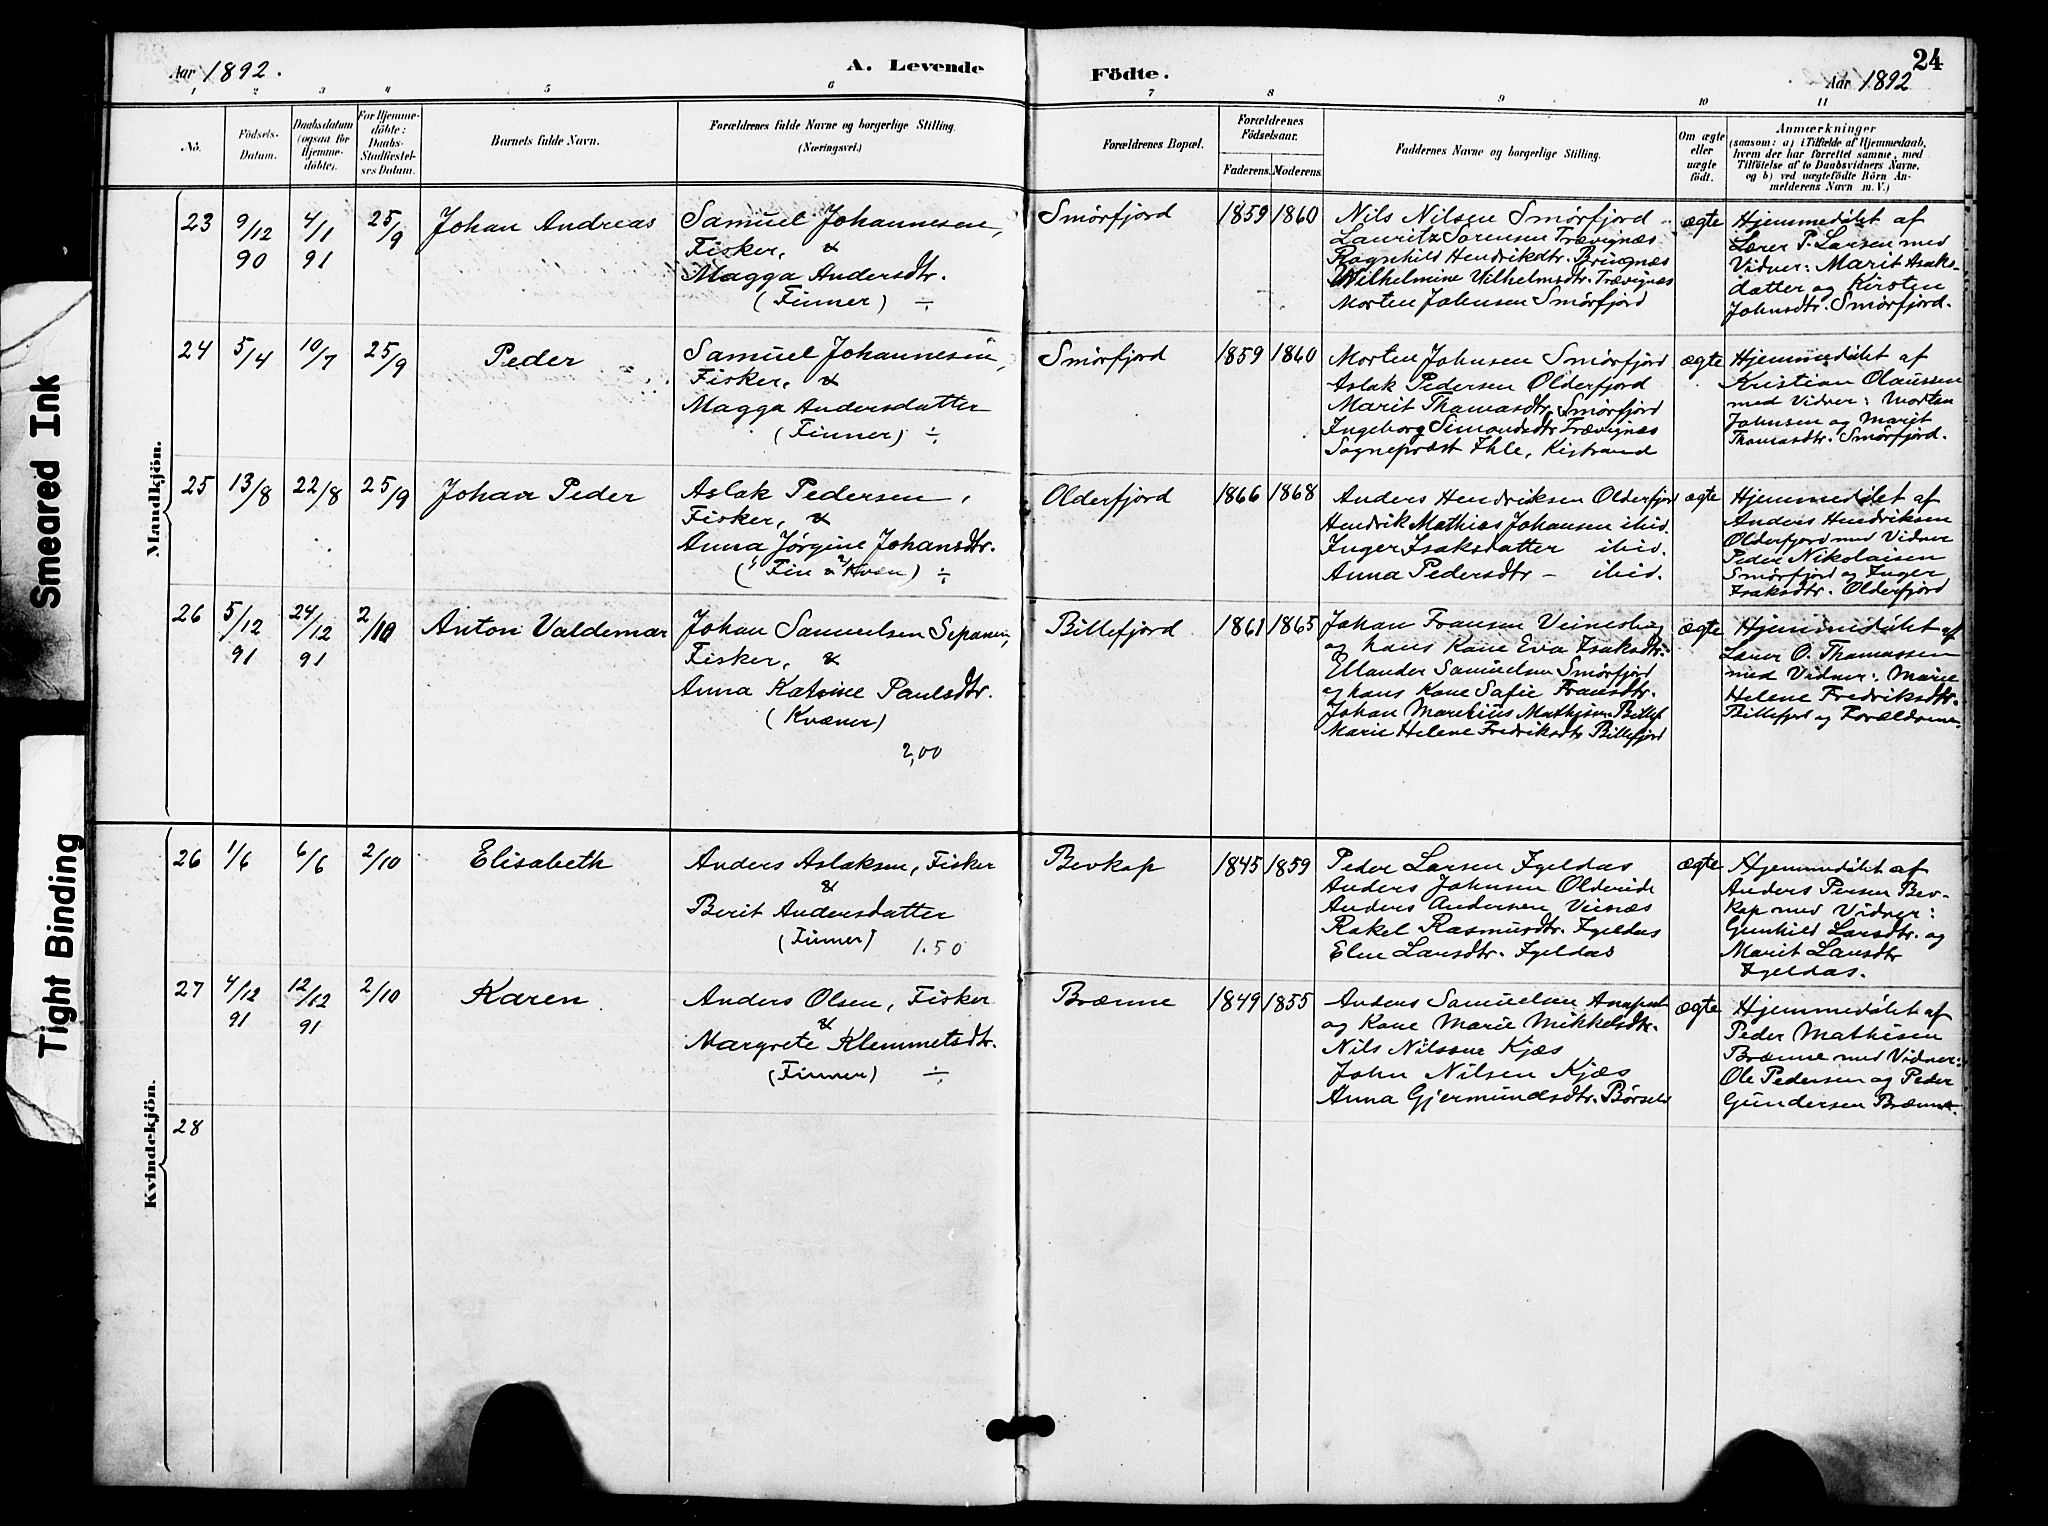 Smeared Ink
Tight Binding
Aar 1892.
A. Levende
Födte.
24
Aar 1892
1 2 3 4 5 6 7 8 9 10 11
No.
Födsels-
Datum.
Daabsdatum
(ogsaa for
Hjemme-
döbte).
For Hjemme-
döbte:
Daabs-
Stadfæstel-
ses Datum.
Barnets fulde Navn.
Forældrenes fulde Navne og borgerlige Stilling.
(Næringsvei.)
Forældrenes Bopæl.
Forældrenes
Födselsaar.
Faderens. Moderens.
Faddernes Navne og borgerlige Stilling.
Om ægte
eller
uægte
födt.
Anmærkninger
(saasom: a) i Tilfælde af Hjemmedaab,
hvem der har forrettet samme, med
Tilföielse af to Daabsvidners Navne,
og b) ved uægtefödte Börn An-
melderens Navn m. V.)
Mandkjön.
23
9/12
90
4/1
91
25/9
Johan Andreas
Samuel Johannesen,
Fisker, &
Magga Andersdtr.
(Finner) ÷
Smörfjord
1859 1860
Nils Nilsen Smörfjord
Lauritz Sörensen Trævignæs
Ragnhild Henriksdtr. Bringnæs
Wilhelmine Vilhelmsdtr. Trævignæs
Morten Johnsen Smörfjord
ægte
Hjemmedöbt af
Lærer P. Larsen med
Vidner: Marit Isaks-
datter og Kirsten
Johnsdtr. Smörfjord.
24
5/4
10/7
25/9
Peder
Samuel Johannesen,
Fisker, &
Magga Andersdatter
(Finner) ÷
Smörfjord
1859 1860
Morten Johnsen Smörfjord
Aslak Pedersen Olderfjord
Marit Thomasdtr. Smörfjord
Ingeborg Simonsdtr Trævignæs
Sogneprest Ihle, Kistrand
ægte
Hjemmedöbt af
Kristian Olaussen
med Vidner: Morten
Johnsen og Marit
Thomasdtr. Smörfjord.
25
13/8
22/8
25/9
Johan Peder
Aslak Pedersen,
Fisker, &
Anna Jørgine Johansdtr.
(Fin & Kvæn) ÷
Olderfjord
1866 1868
Anders Hendriksen Olderfjord
Hendrik Mathias Johansen ibid.
Inger Isaksdatter ibid.
Anna Pedersdtr – ibid.
ægte
Hjemmedöbt af
Anders Hendriksen
Olderfjord med Vidner
Peder Nikolaisen
Smörfjord og Inger
Isaksdtr. Olderfjord
26
5/12
91
24/12
91
2/10
Anton Valdemar
Johan Samuelsen
Fisker, &
Anna Katrine Paulsdtr.
(Kvæner)
2,00
Billefjord
1861 1865
Johan Fransen
og hans Kone Eva Isaksdtr.
Ellander Samuelsen Smörfjord
og hans Kone Safie Fransdtr.
Johan Mathisen Billef
Marie Helene Fredriksdtr Billefjord
ægte
Hjemmedöbt af
Lærer O. Thomassen
med Vidner: Marie
Helene Fredriksdtr.
Billefjord og Forældrene.
Kvindekjön.
26
1/6
6/6
2/10
Elisabeth
Anders Aslaksen, Fisker
&
Berit Andersdatter
(Finner) 1.50
Bevkop
1845 1859
Peder Larsen Igeldas
Anders Johnsen Oldereide
Anders Andersen Veinæs
Rakel Rasmusdtr. Igeldas
Elen Larsdtr. Igeldas
ægte
Hjemmedöbt af
Anders Persen Bev-
kop med Vidner:
Gunhild Larsdtr. og
Marit Larsdtr
Igeldas.
27
4/12
91
12/12
91
2/10
Karen
Anders Olsen, Fisker
&
Margrete Klemmetsdtr.
(Finner) ÷
Brænne
1849 1855
Anders Samuelsen
og Kone Marie Mikkelsdtr.
Nils Nilsen Kjæs
John Nilsen Kjæs
Anna Gjermundsdtr. Børselv
ægte
Hjemmedöbt af
Peder Mathisen
Brænne med Vidner:
Ole Pedersen og Peder
Gundersen Brænne.
28